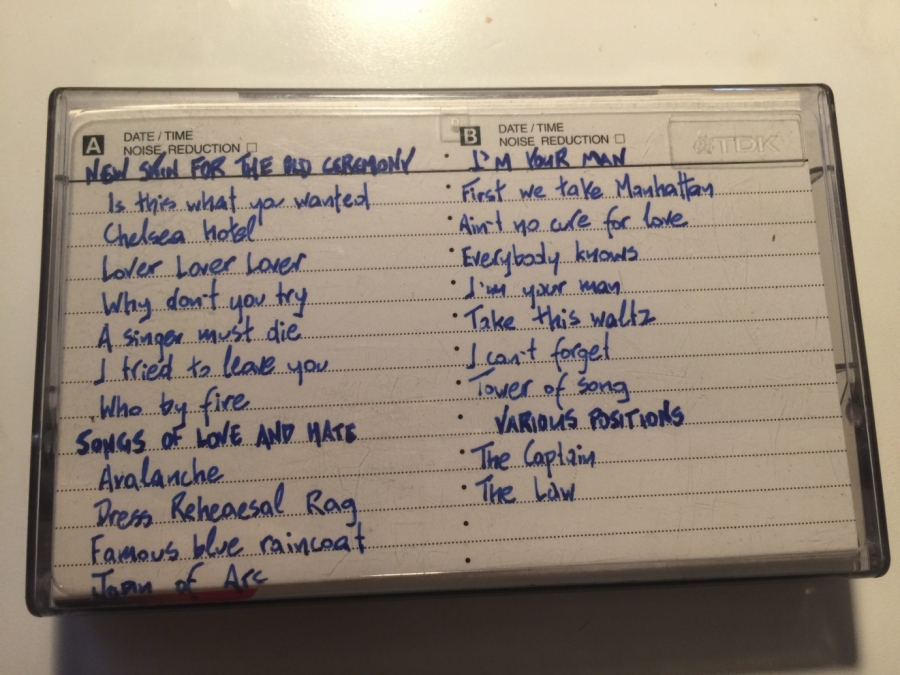 A DATE / TIME
NOISE REDUCTION
NEW SKIN FOR THE OLD CEREMONY
Is this what you wanted
Chelsea Hotel
Lover Lover Lover
Why don't you try
A singer must die
I tried to leave you
Who by fire
SONGS OF LOVE AND HATE
Avalanche
Dress Rehearsal Rag
Famous blue raincoat
Joan of Arc
B DATE / TIME
NOISE REDUCTION
TDK
I'M YOUR MAN
First we take Manhattan
Ain't no cure for love
Everybody knows
I'm your man
Take this waltz
I can't forget
Tower of song
VARIOUS POSITIONS
The Captain
The Law